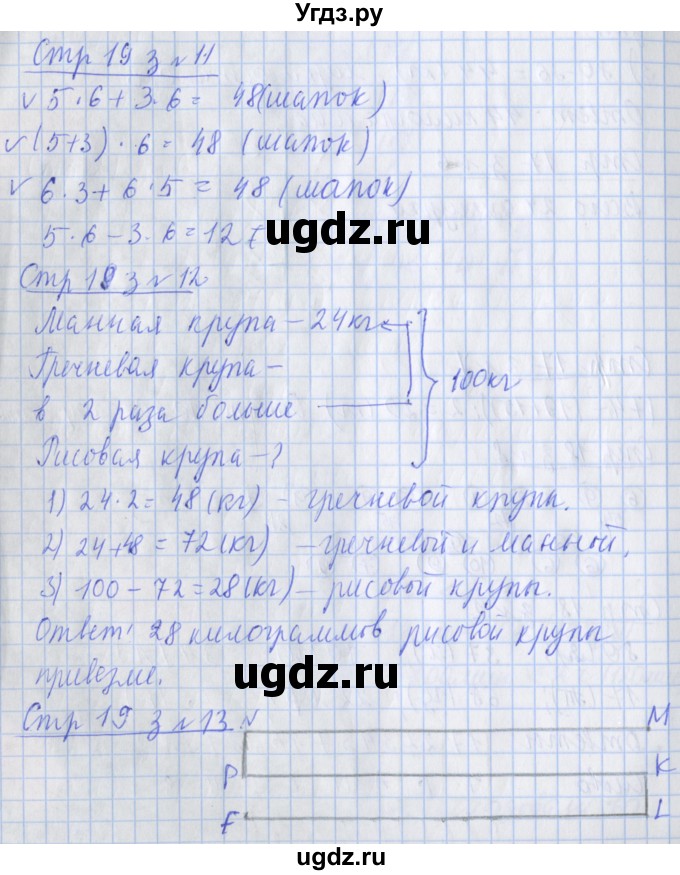 Угдз.ру
Стр 19 з №11
✓ 5·6+3·6= 48(шапок)
✓ (5+3)·6= 48 (шапок)
✓ 6·3+6·5= 48 (шапок)
5·6-3·6=12
ugdz.ru
Стр 19 з №12
Манная крупа-24кг
Гречневая крупа-
в 2 раза больше
100кг
Рисовая крупа-?
1) 24·2=48(кг) - гречневой крупы.
2) 24+48=72(кг) -гречневой и манной.
3) 100-72=28(кг)- рисовой крупы.
Ответ: 28 килограммов рисовой крупы
ugdz.ru
Стр 19 з №13
N M
P K
F L
ugdz.ru